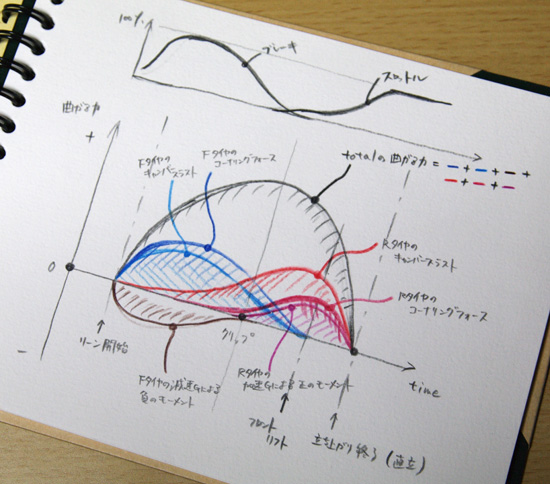 100%
ブレーキ
スロットル
曲がる力
+
Fタイヤの
キャンバースラスト
Fタイヤの
コーナリングフォース
totalの曲がる力 = – + – + – +
– + – + –
Rタイヤの
キャンバースラスト
0
Rタイヤの
コーナリングフォース
クリップ
リーン開始
–
Fタイヤの減速Gによる
負のモーメント
Rタイヤの
加速Gによる正のモーメント
time
フロント
リフト
立上がり終了(直立)